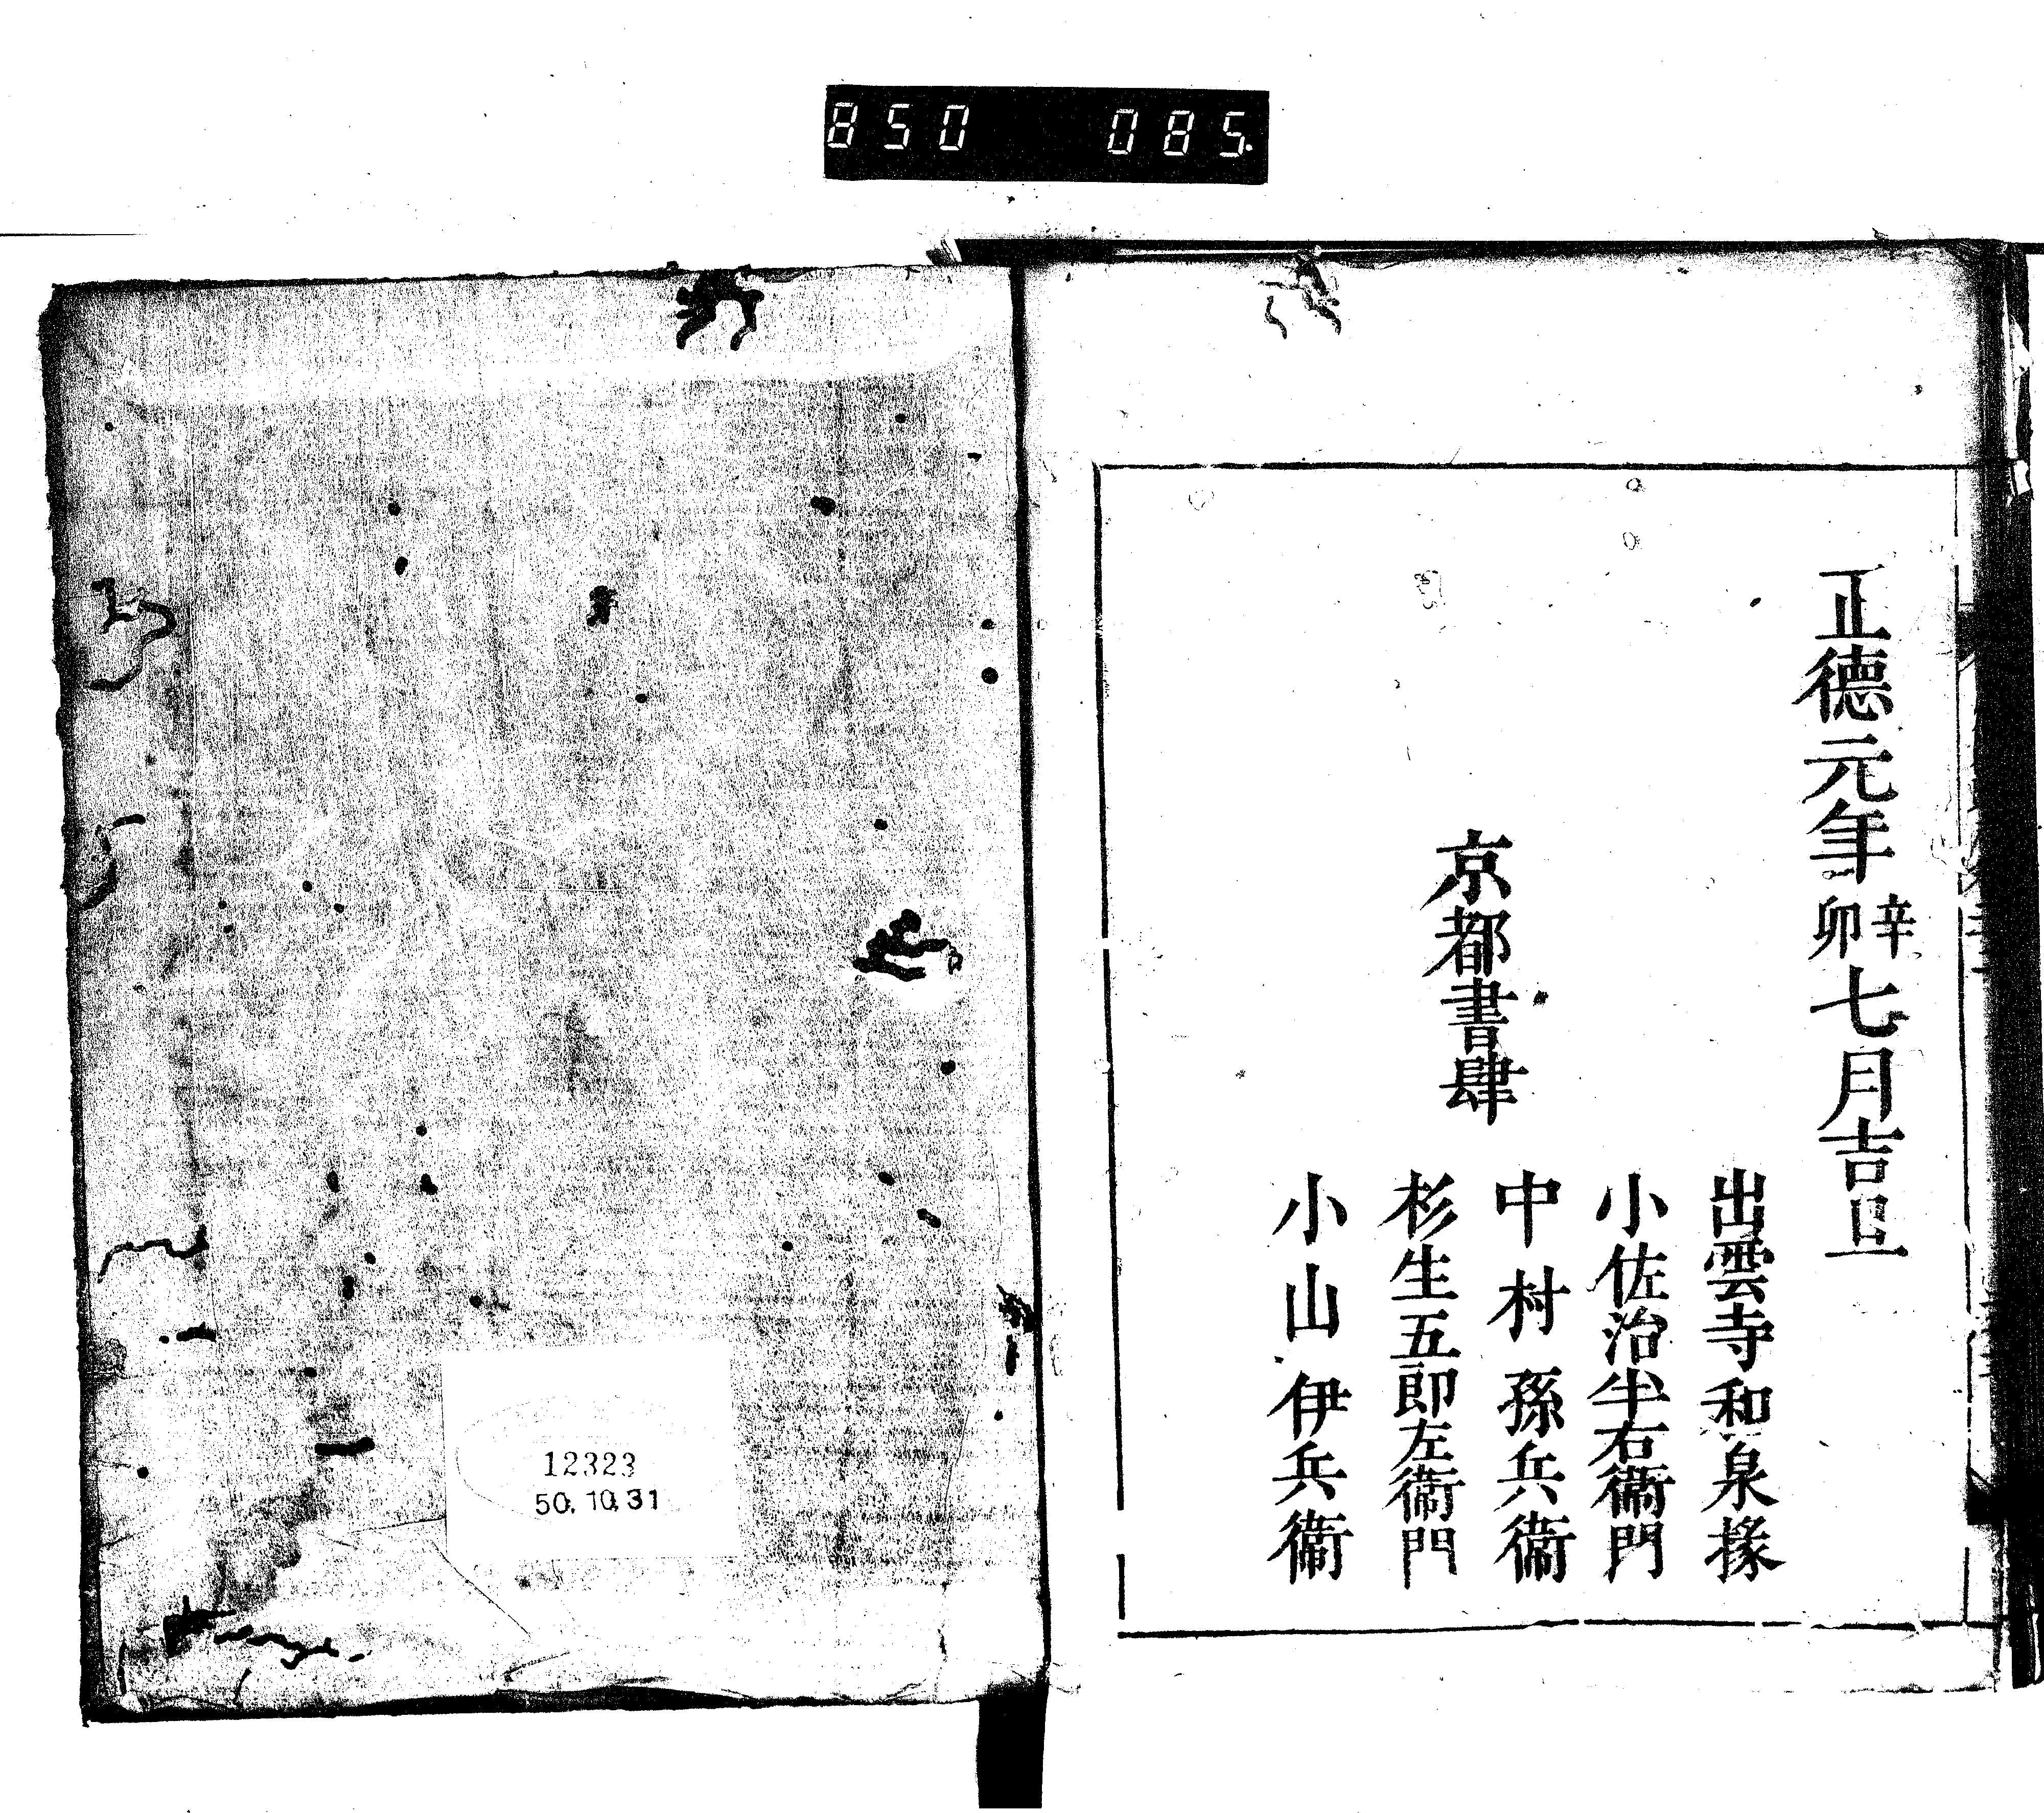 850 085.
正德元年辛卯七月吉旦
京都書肆
出雲寺和泉掾
小佐治半右衞門
中村孫兵衞
杉生五郎左衞門
小山伊兵衞
12323
50.10.31